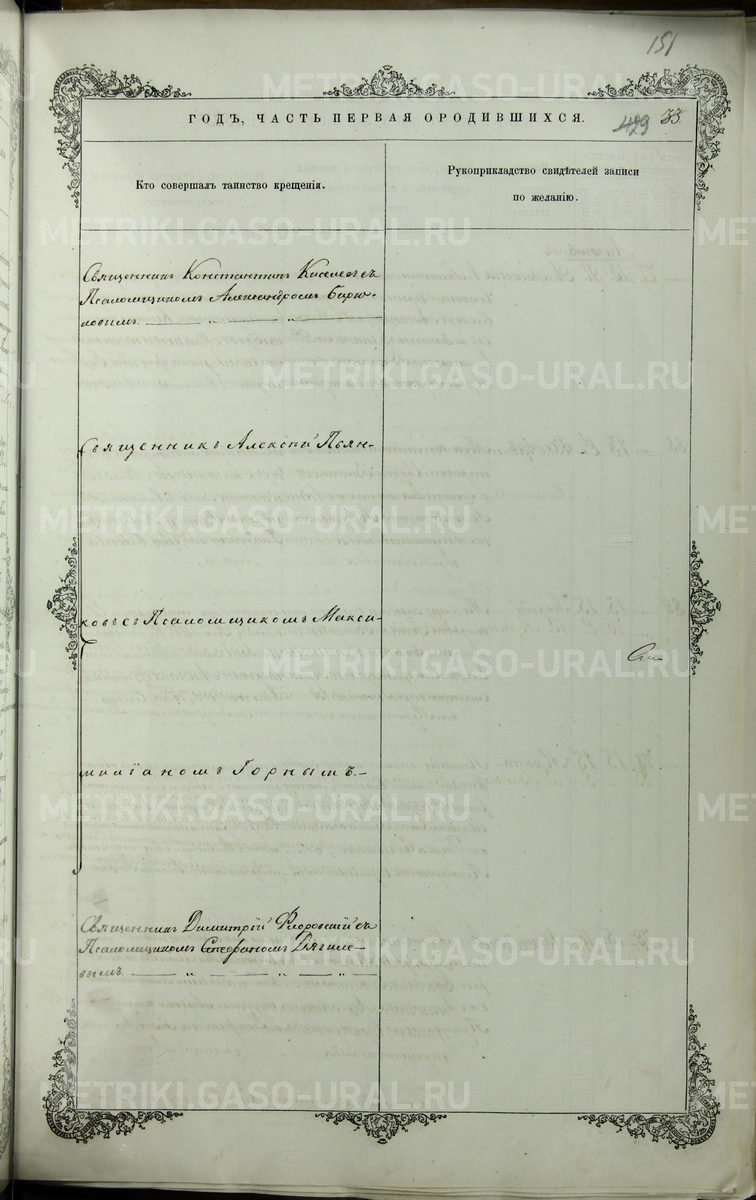 151
ГОДЪ, ЧАСТЬ ПЕРВАЯ О РОДИВШИХСЯ.
429 33
Кто совершалъ таинство крещенія.
Рукоприкладство свидѣтелей записи
по желанію.
Священникъ Константинъ Киселевъ съ
Псаломщикомъ Александромъ Бирю-
ковымъ.
Священникъ Алексѣй Пьян-
ковъ съ Псаломщикомъ Макси-
миліаномъ Горнымъ.
Священникъ Димитрій Флоровскій съ
Псаломщикомъ Стефаномъ Дягиле-
вымъ.
METRIKI.GASO-URAL.RU